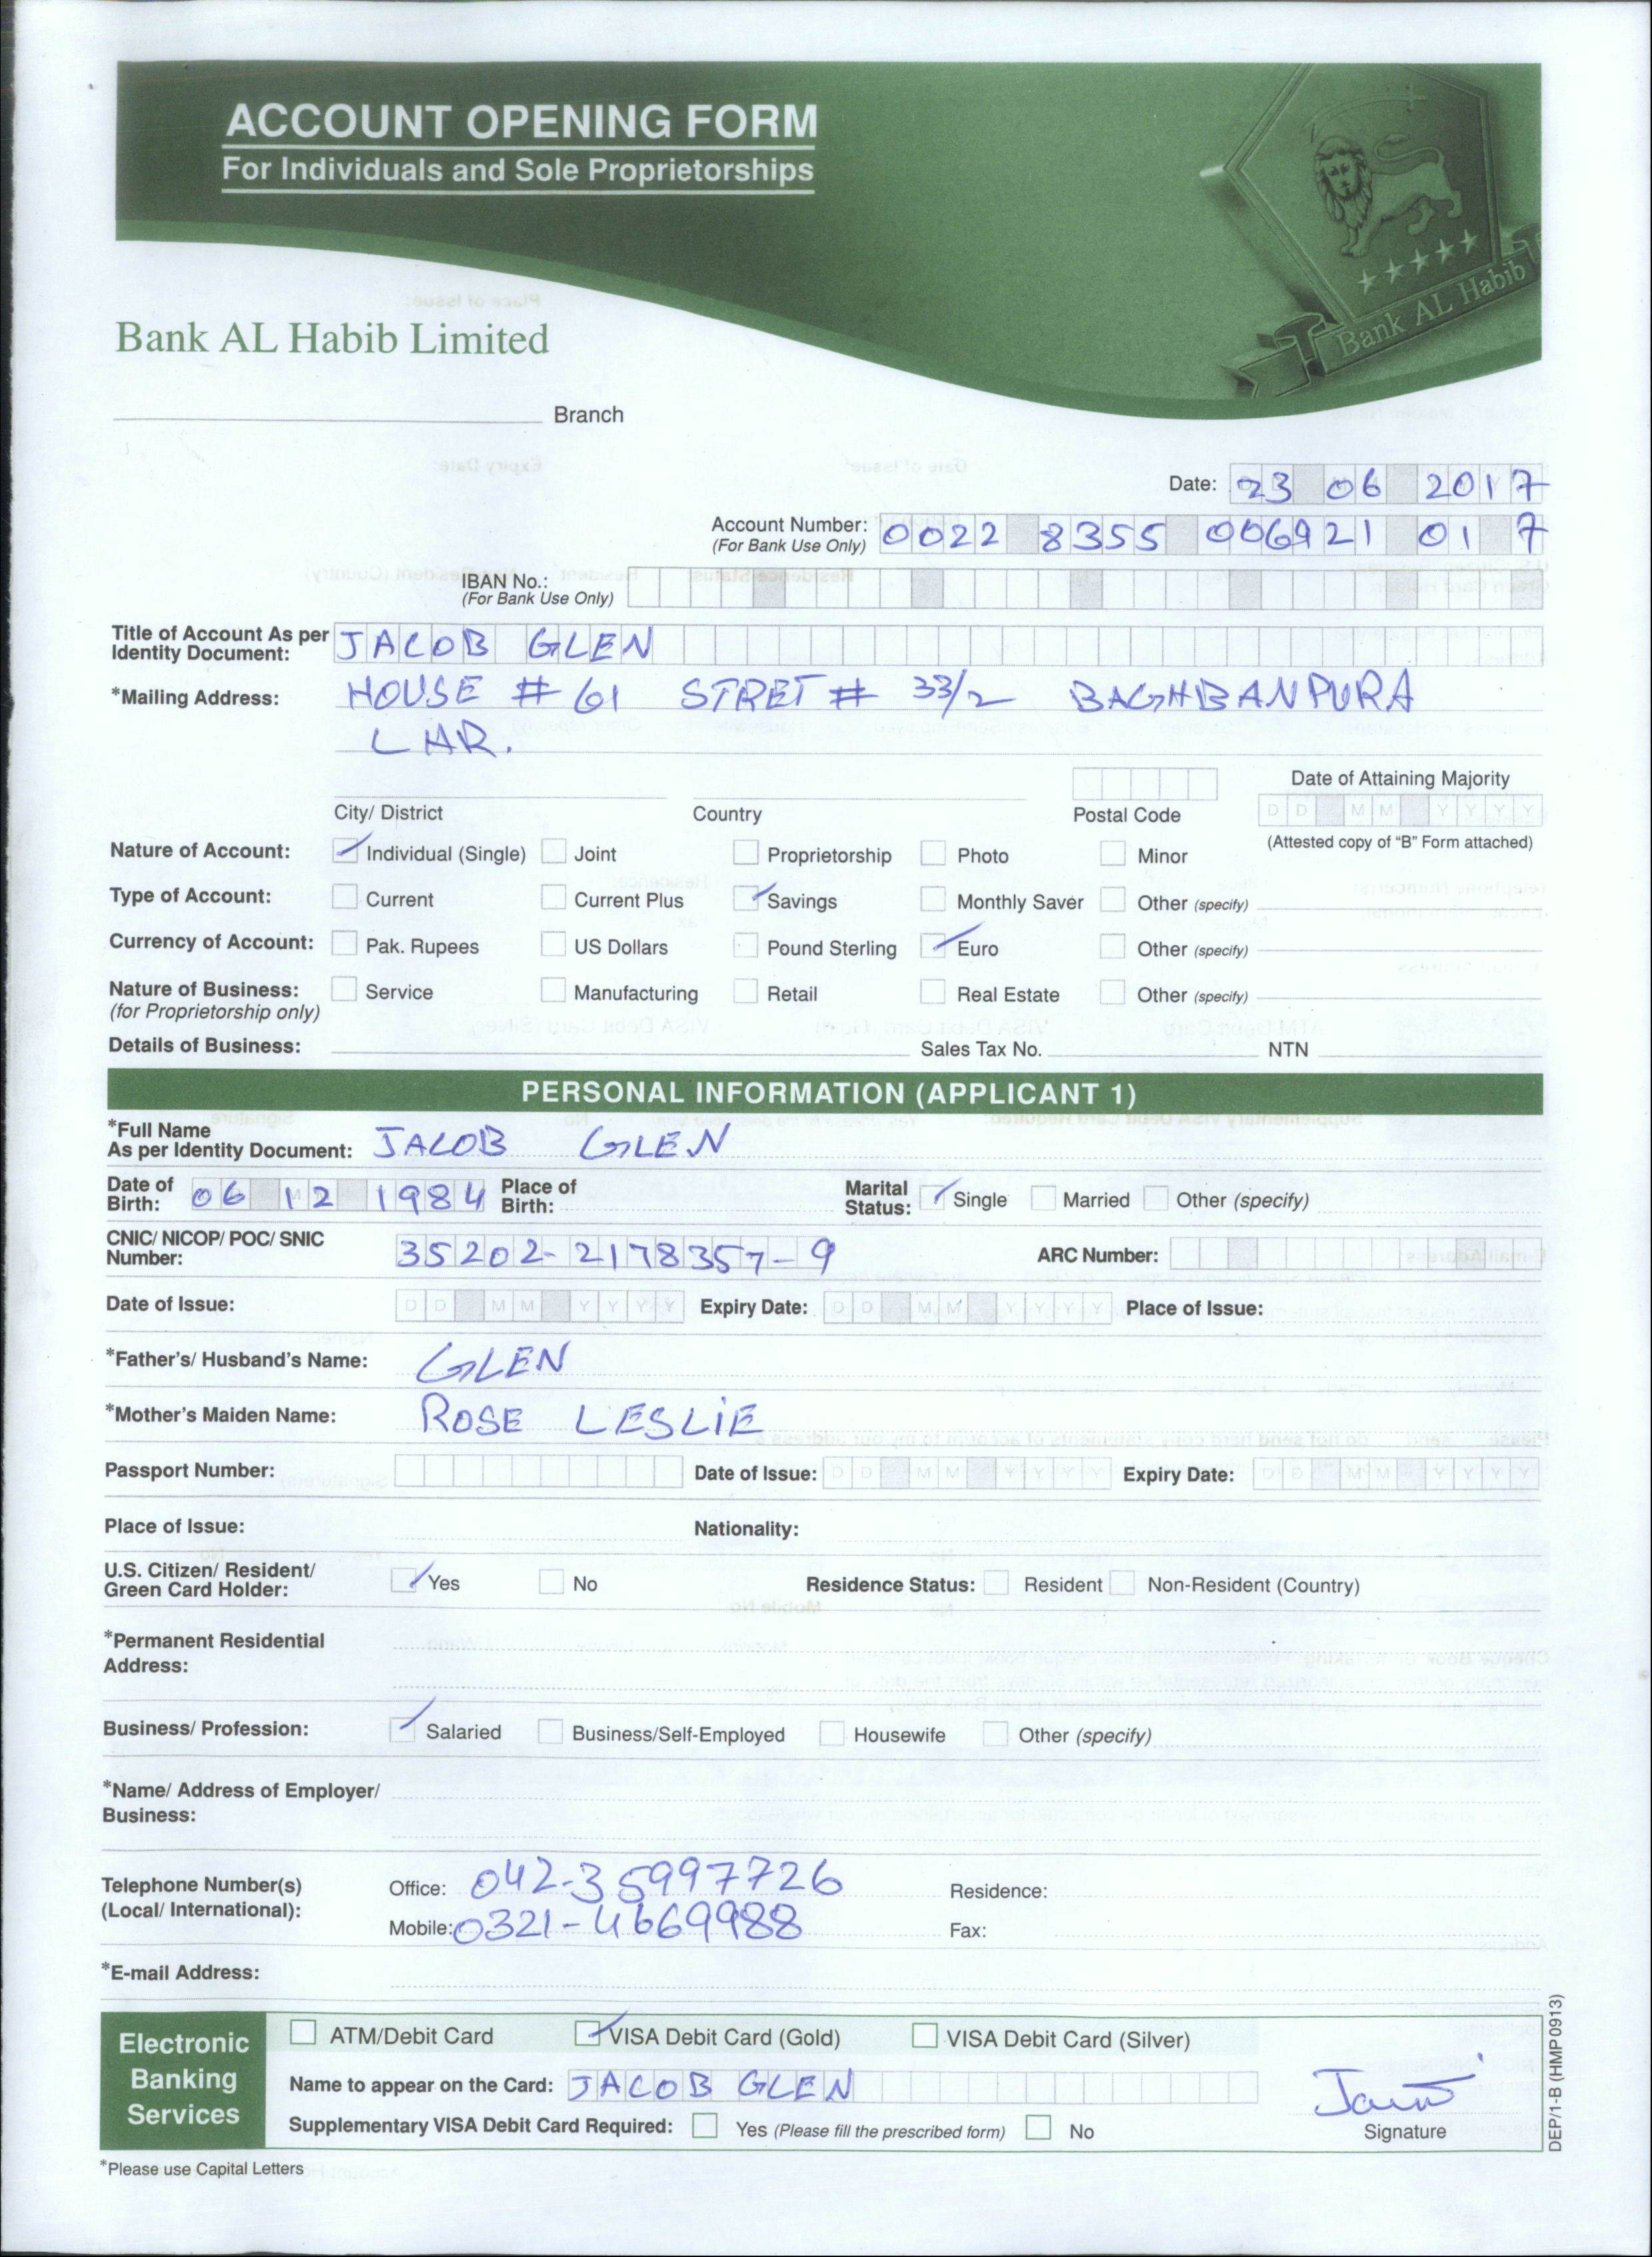 ACCOUNT OPENING FORM
For Individuals and Sole Proprietorships
Bank AL Habib
Bank AL Habib Limited
Branch
Date: 23 06 2017
Account Number: 0022 8355 006921 01 7
(For Bank Use Only)
IBAN No.:
(For Bank Use Only)
Title of Account As per
Identity Document: JACOB GLEN
*Mailing Address: HOUSE # 61 STRET # 33/2 BAGHBANPURA
LHR.
City/ District Country Postal Code Date of Attaining Majority
D D M M Y Y Y Y
(Attested copy of "B" Form attached)
Nature of Account: Individual (Single) Joint Proprietorship Photo Minor
Type of Account: Current Current Plus Savings Monthly Saver Other (specify)
Currency of Account: Pak. Rupees US Dollars Pound Sterling Euro Other (specify)
Nature of Business: Service Manufacturing Retail Real Estate Other (specify)
(for Proprietorship only)
Details of Business: Sales Tax No. NTN
PERSONAL INFORMATION (APPLICANT 1)
*Full Name
As per Identity Document: JACOB GLEN
Date of Birth: 06 12 1984 Place of Birth: Marital Status: Single Married Other (specify)
CNIC/ NICOP/ POC/ SNIC
Number: 35202-2178357-9 ARC Number:
Date of Issue: D D M M Y Y Y Y Expiry Date: D D M M Y Y Y Y Place of Issue:
*Father's/ Husband's Name: GLEN
*Mother's Maiden Name: ROSE LESLiE
Passport Number: Date of Issue: D D M M Y Y Y Y Expiry Date: D D M M Y Y Y Y
Place of Issue: Nationality:
U.S. Citizen/ Resident/
Green Card Holder: Yes No Residence Status: Resident Non-Resident (Country)
*Permanent Residential
Address:
Business/ Profession: Salaried Business/Self-Employed Housewife Other (specify)
*Name/ Address of Employer/
Business:
Telephone Number(s) Office: 042-35997726 Residence:
(Local/ International): Mobile: 0321-4669988 Fax:
*E-mail Address:
Electronic Banking Services
ATM/Debit Card VISA Debit Card (Gold) VISA Debit Card (Silver)
Name to appear on the Card: JACOB GLEN
Supplementary VISA Debit Card Required: Yes (Please fill the prescribed form) No
Signature
*Please use Capital Letters
DEP/1-B (HMP0913)